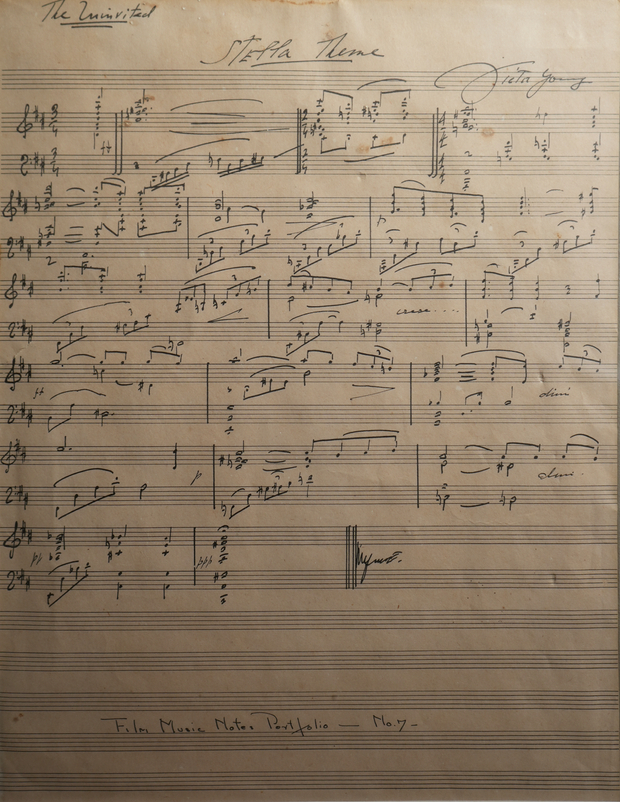 The Uninvited
Stella Theme
Victor Young
ff
p
p
cresc....
ff
dim
p
dim.
pp
ppp
Film Music Notes Portfolio — No. 7 –